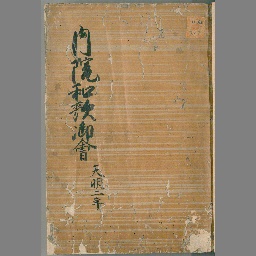 内院和歌御會
天明二年